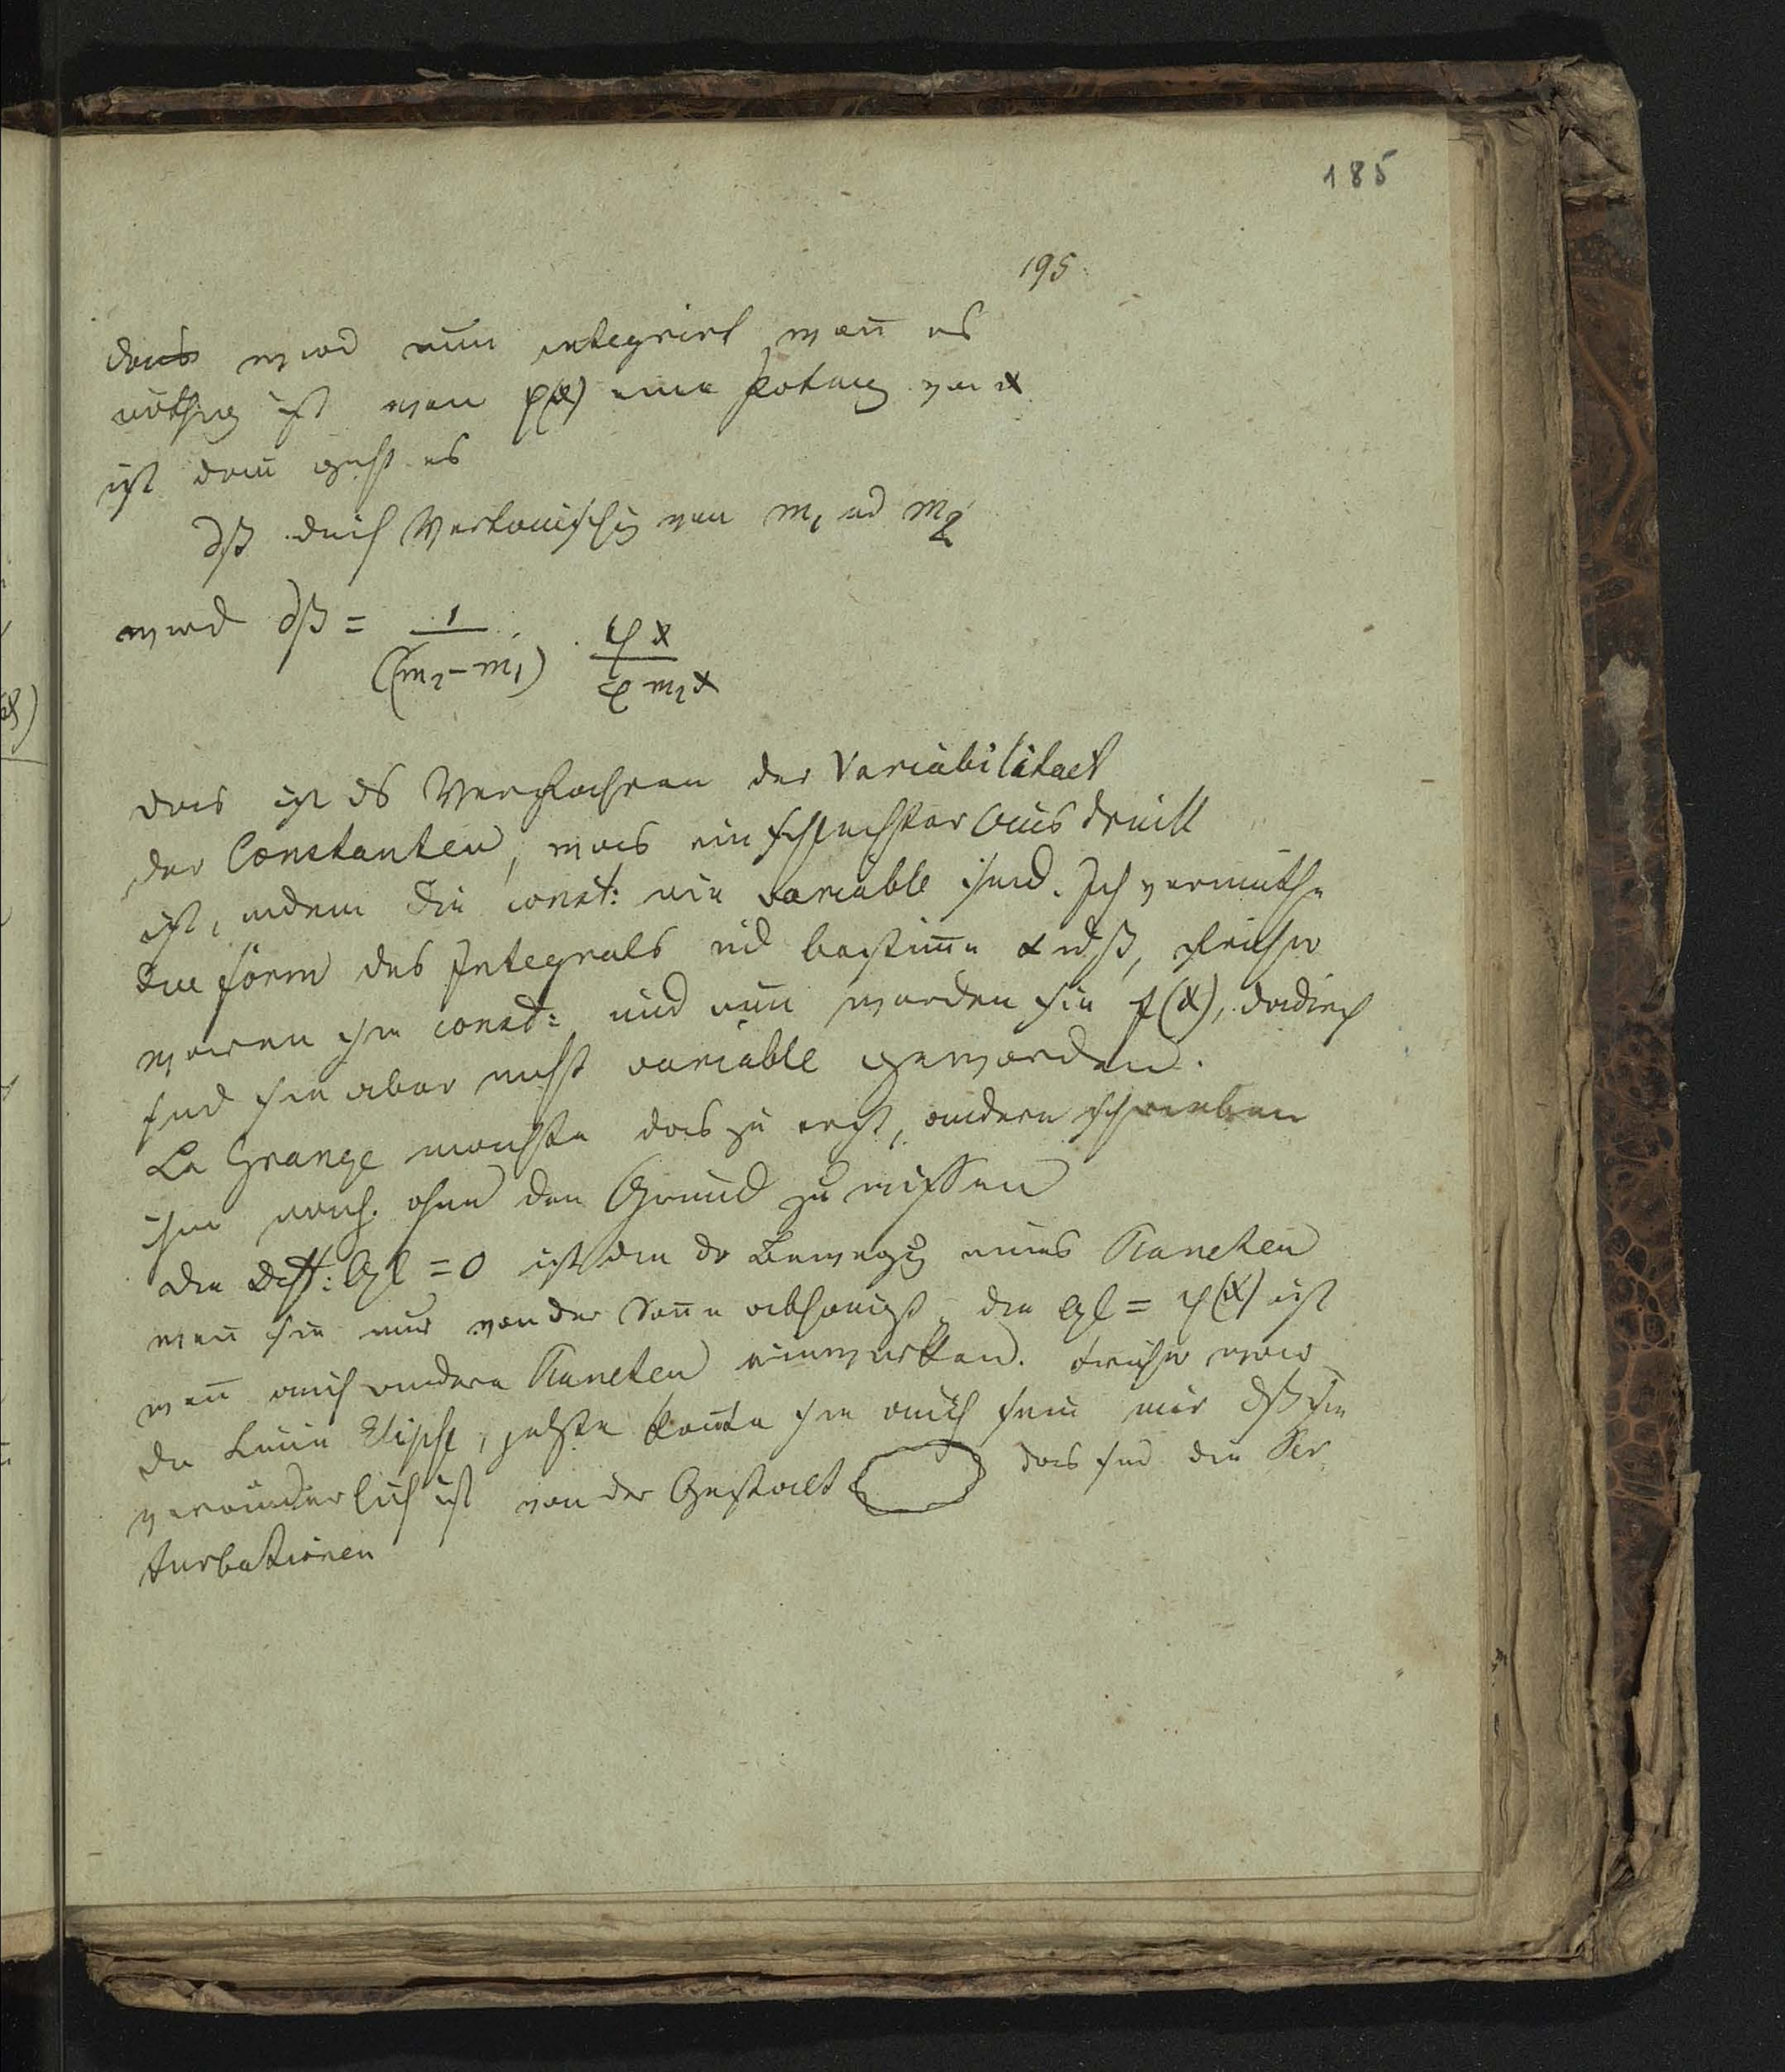 185
195
das wird nun integrirt, wen̄ es
nöthig ist wen φ(x) eine Potenz von x
ist dan̄ geht es
∂β durch Vertauschg von m₁ und m₂
wird ∂β = 1/(m₂-m₁) · φx/e m₂x
das ist ds Verfahren der Variabilitaet
der Constanten, was ein schlechter Ausdruck
ist, indem die const: nie variable sind. Ich vermuthe
die Form des Integrals und bestim̄e α und β, früher
waren sie const: und nun werden sie f(x), dadurch
sind sie aber nicht variable geworden.
La Grange machte das zu erst, andere schrieben
ihm nach. ohne den Grund zu wissen
die Diff: Gl = 0 ist die der Bewegg eines Planeten
wen̄ sie nur von der Son̄e abhängt, die Gl = φ(x) ist
wen̄ auch andere Planeten einwirken. früher war
die Linie Elipse, jetzt kon̄te sie auch sein nur dß sie
veränderlich ist von der Gestalt das sind die Per
turbationen